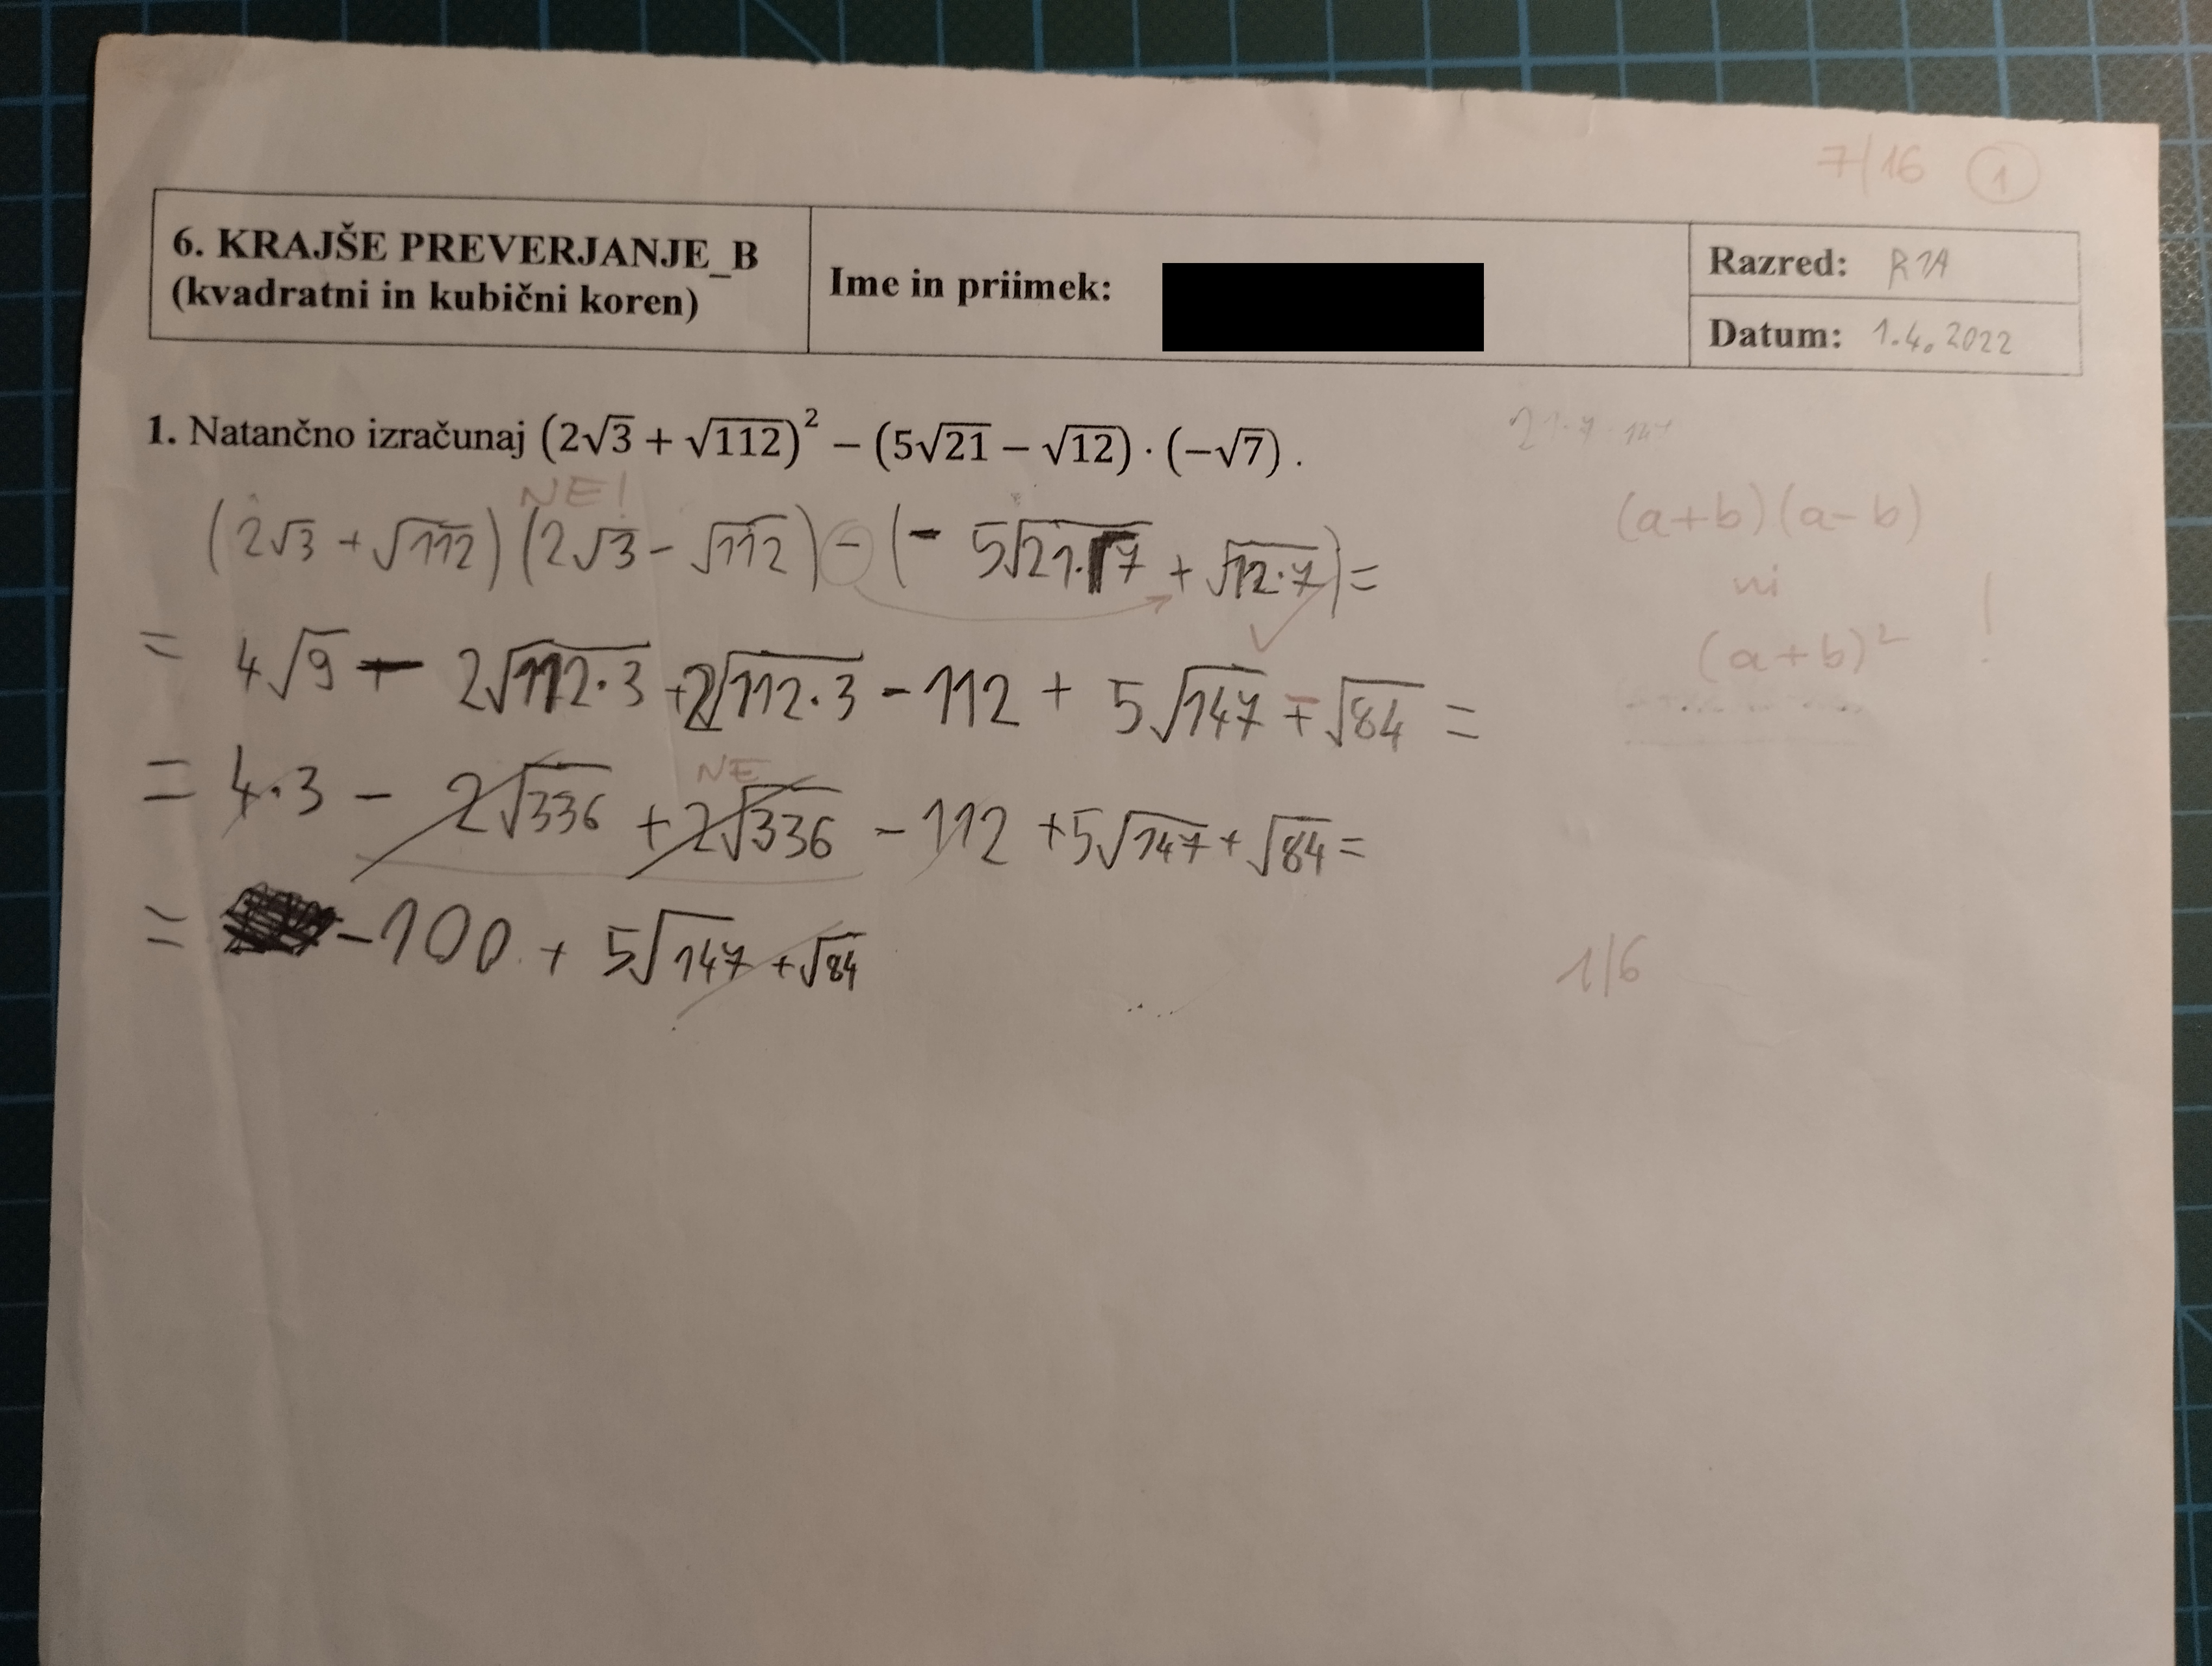 7/16 1
6. KRAJŠE PREVERJANJE_B
(kvadratni in kubični koren)
Ime in priimek:
Razred: R1A
Datum: 1.4.2022
1. Natančno izračunaj (2√3 + √112)² − (5√21 − √12) · (−√7) .
21·7 147
NE!
(2√3 + √112) (2√3 − √112) − (− 5√21·7 + √12·7) =
(a+b)(a−b)
ni
(a+b)² !
= 4√9 − 2√112·3 + 2√112·3 − 112 + 5√147 + √84 =
NE
= 4·3 − 2√336 + 2√336 − 112 + 5√147 + √84 =
= −100 + 5√147 + √84
1/6